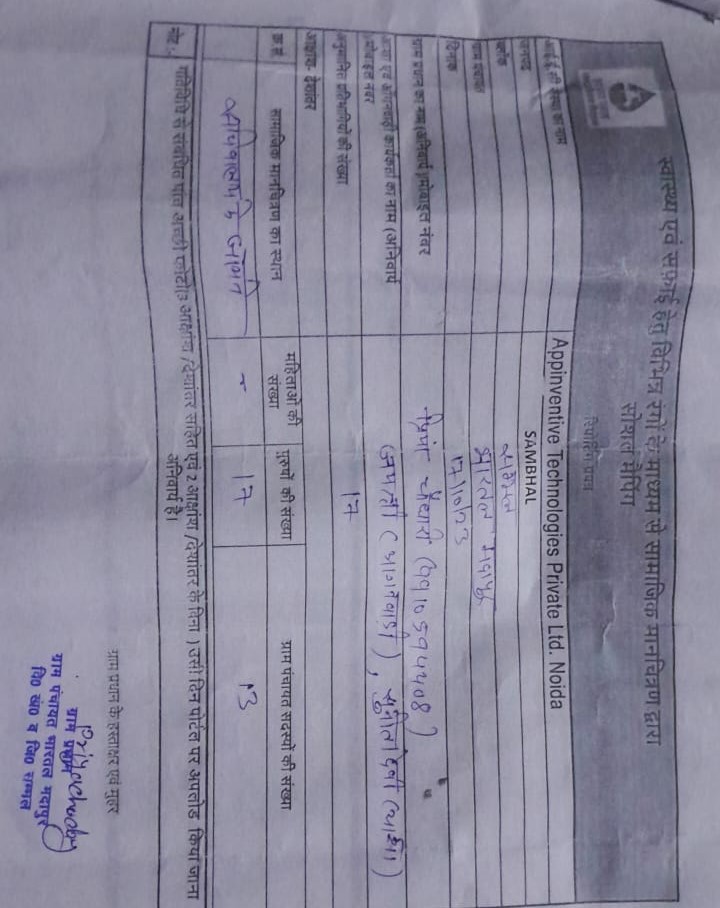 स्वास्थ्य एवं सफाई हेतु विभिन्न रंगों के माध्यम से सामाजिक मानचित्रण द्वारा
सोशल मैपिंग
रिपोर्टिंग प्रपत्र
आई ई सी संस्था का नाम Appinventive Technologies Private Ltd. Noida
जनपद SAMBHAL
ब्लॉक सम्भल
ग्राम पंचायत सारतल मदापुर
दिनांक
ग्राम प्रधान का नाम (अनिवार्य) मोबाइल नंबर प्रियंा चौधरी
आशा एवं आंगनवाड़ी कार्यकर्ता का नाम (अनिवार्य
मोबाइल नंबर जयश्री (आंगनवाड़ी), सुनीता देवी (आशा)
अनुमानित प्रतिभागियों की संख्या 17
अक्षांश- देशांतर
क्र.सं. सामाजिक मानचित्रण का स्थान महिलाओं की संख्या पुरुषों की संख्या ग्राम पंचायत सदस्यों की संख्या
17 13
नोट :- गतिविधि से संबंधित पांच अच्छी फोटो(3 अक्षांश /देशांतर सहित एवं 2 अक्षांश /देशांतर के बिना ) उसी दिन पोर्टल पर अपलोड किया जाना
अनिवार्य है।
ग्राम प्रधान के हस्ताक्षर एवं मुहर
Priyachaudhary
ग्राम प्रधान
ग्राम पंचायत सारतल मदापुर
वि0 खं0 व जि0 सम्भल